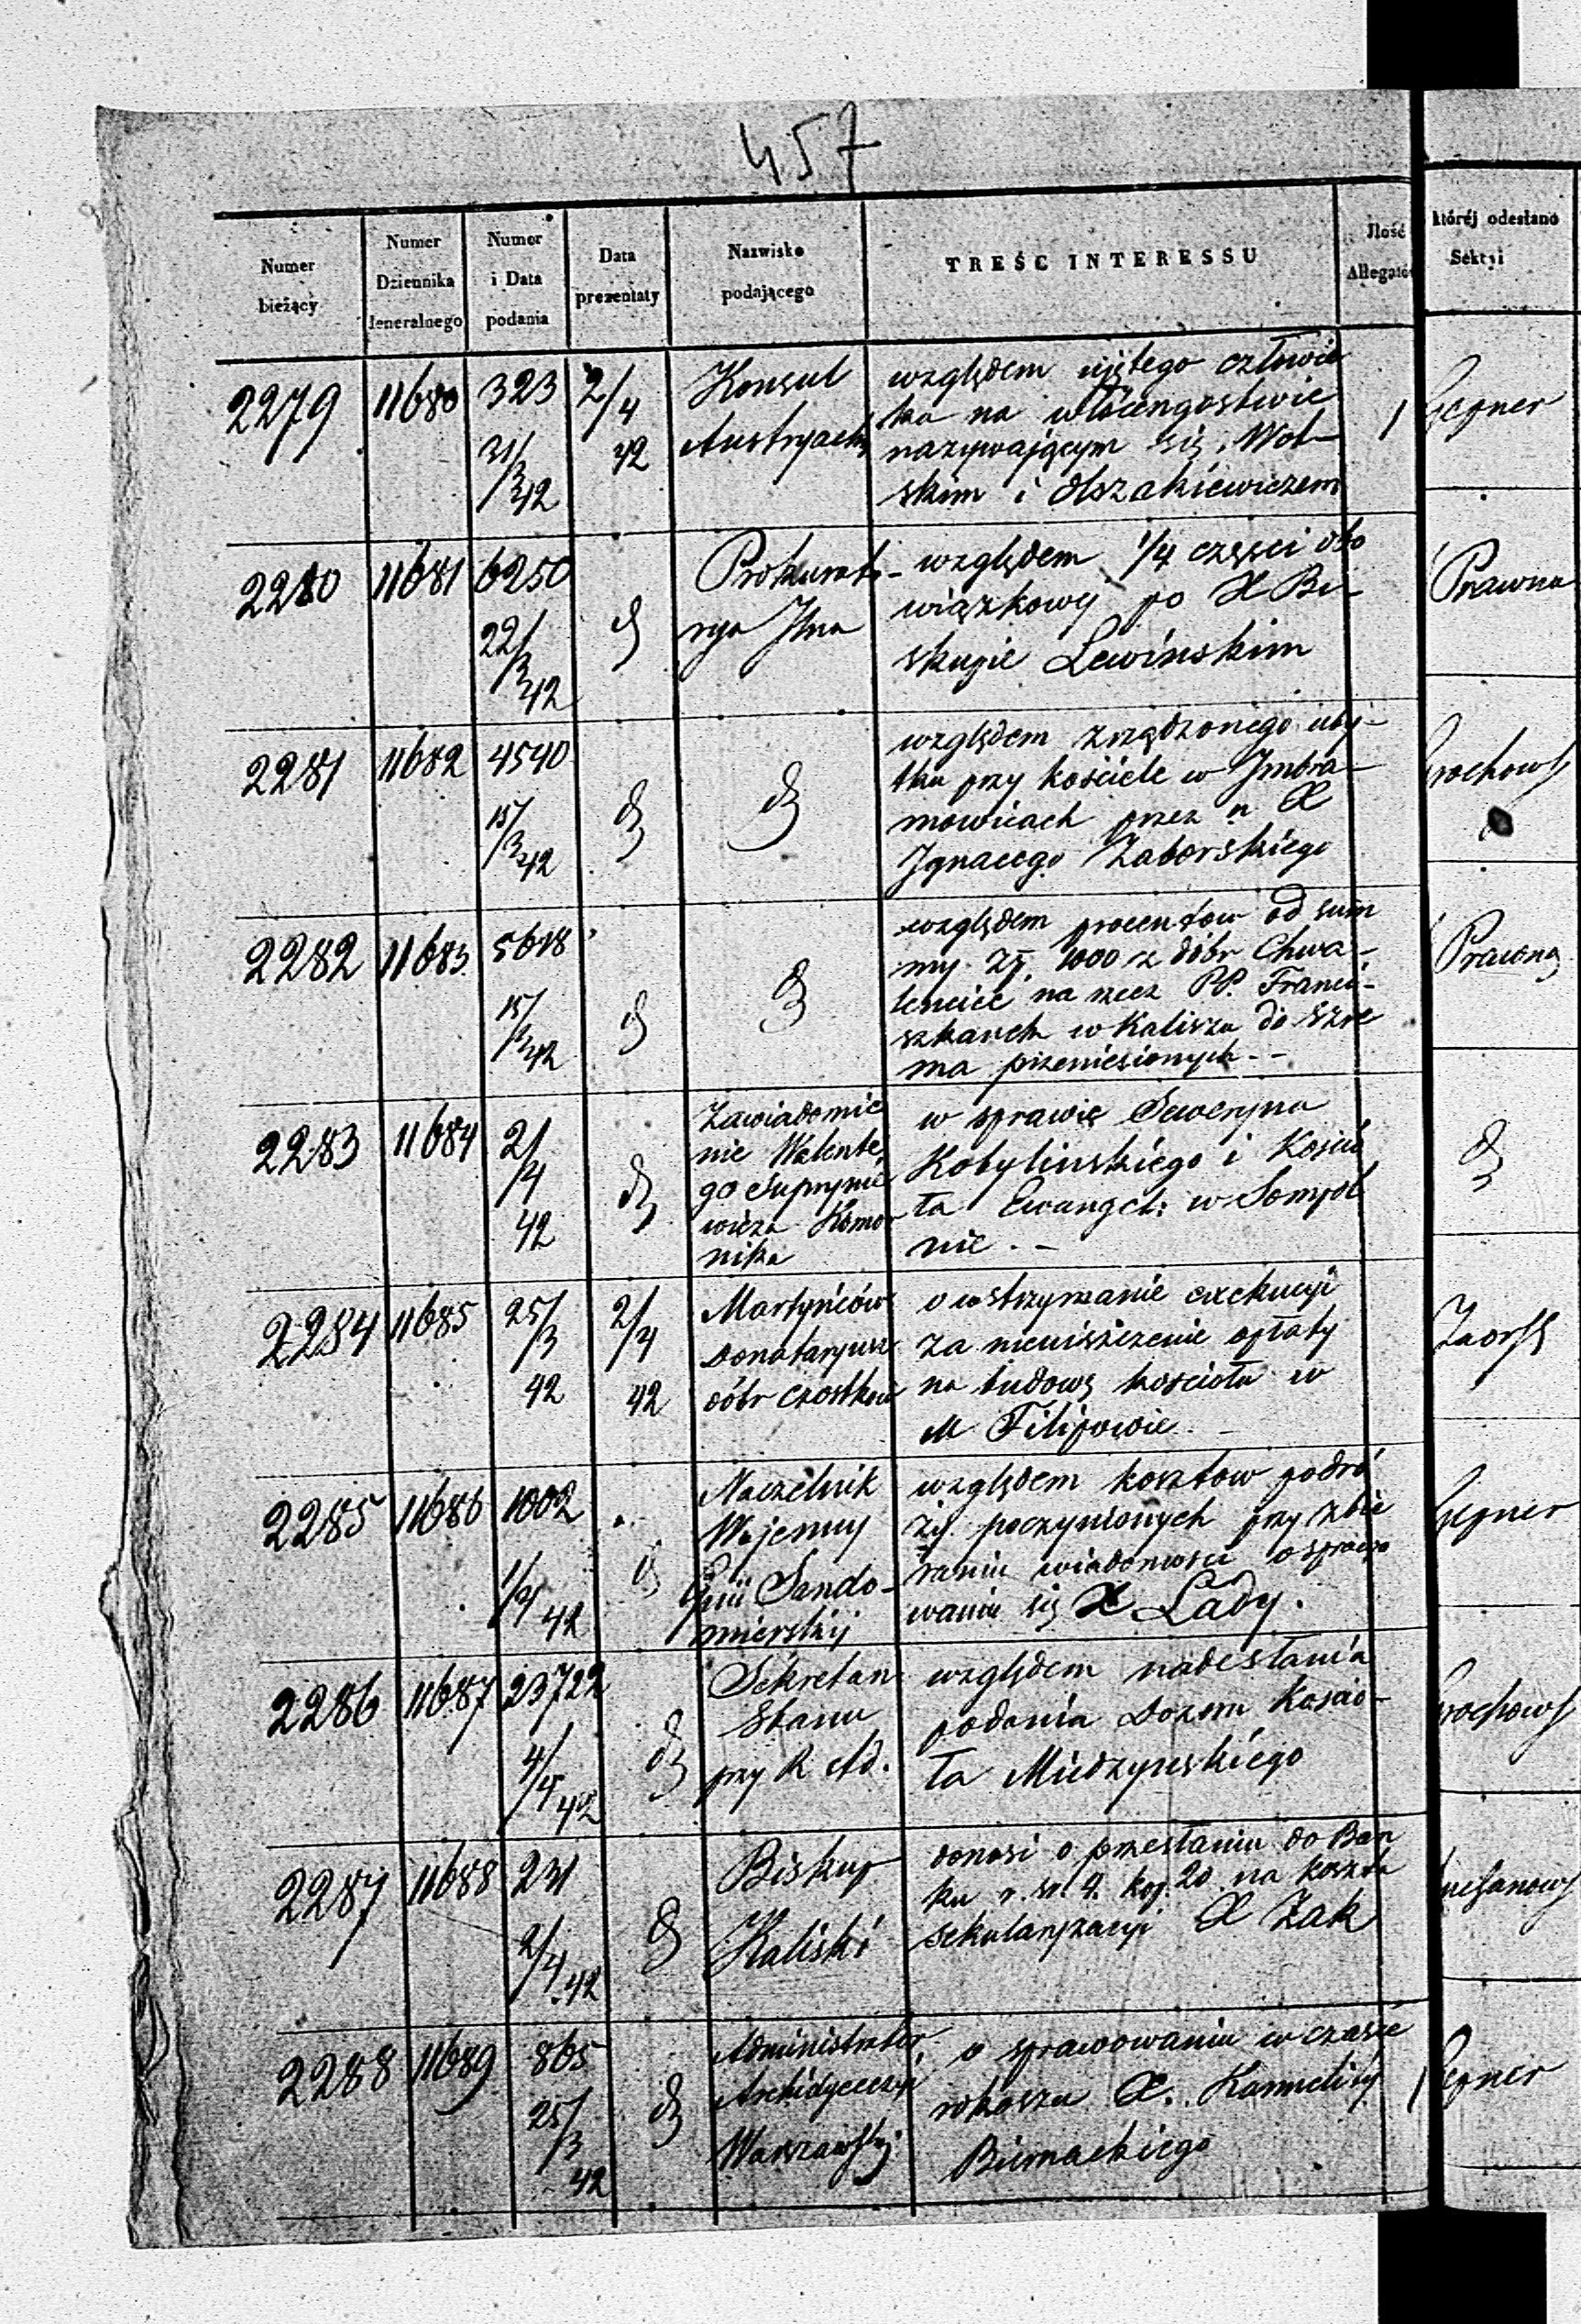 457
Numer bieżący
Numer Dziennika Jeneralnego
Numer i Data podania
Data prezentaty
Nazwisko podającego
TREŚĆ INTERESSU
Ilość Allegatów
której odesłano Sekcyi
2279 11680 323 31/3 42 2/4 42
Konsul
Austryacki
względem ujętego człowie
ka na włóczengostwie
nazywającym się Wol-
skim i Olszakiewiczem
1
Gepner
2280 11681 6250 22/3 42 d
Prokurato-
rya Jlna
względem 1/4 części obo
wiązkowej po X Bi-
skupie Lewińskim
Prawna
2281 11682 4540 15/3 42 d
d
względem zrządzonego uby-
tku przy kościele w Imbra-
mowicach przez n X
Ignacego Zaborskiego
2282 11683 5618 15/3 42 d
d
względem procentow od sum
my Zł. 1000 z dóbr Chwa-
lencice na rzecz PP. Franci-
szkanek w Kaliszu do Szre
ma przeniesionych - -
Prawna
2283 11684 2/4 42 d
Zawiadomie
nie Walente
go Suprynie
wicza Komor
nika
w sprawie Seweryna
Kobylinskiego i Kościo
ła Ewangel: w Sompol
nie . -
d
2284 11685 25/3 42 2/4 42
Martyńców
Donataryusz
dóbr Czostków
o wstrzymanie exekucyi
za nieuiszczenie opłaty
na budowę kościoła w
M Filipowie.
2285 11686 1002 1/4 42 d
Naczelnik
Wojenny
Gnii Sando-
mierskiej
względem kosztow podró
ży poczynionych przy zbie
raniu wiadomosci o sprawo
waniu się X Lady.
Gepner
2286 11687 23722 4/4 42 d
Sekretarz
Stanu
przy R Ad.
względem nadesłania
podania Dozoru Kościo-
ła Miedzyreskiego
2287 11688 231 2/4 42 d
Biskup
Kaliski
donosi o przesłaniu do Ban
ku r. sr. 9. kop. 20 na koszta
sekularyzacyi X Żak
2288 11689 865 25/3 42 d
Administrator
Archidyecezyi
Warszawskiej
o sprawowaniu w czasie
rokoszu X. Karmelity
Biernackiego
1
Gepner